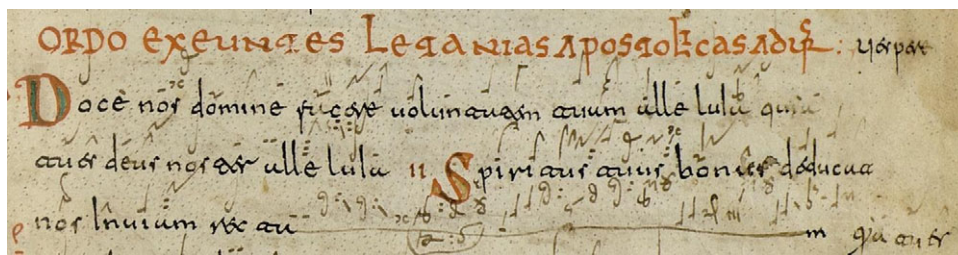 ORDO EXEUNTES LETANIAS APOSTOLICAS
Doce nos domine facere uoluntatem tuam alleluia quia
tu es deus noster alleluia II Spiritus tuus bonus deducat
nos in uiam rectam quia tu es